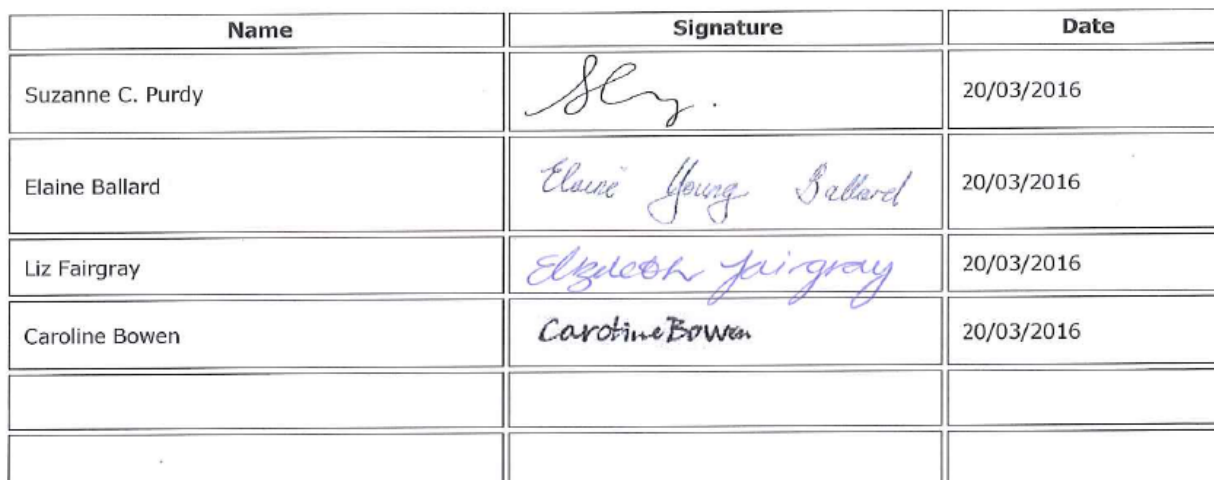 Name Signature Date
Suzanne C. Purdy 20/03/2016
Elaine Ballard Elaine Young Ballard 20/03/2016
Liz Fairgray Elizabeth Fairgray 20/03/2016
Caroline Bowen Caroline Bowen 20/03/2016